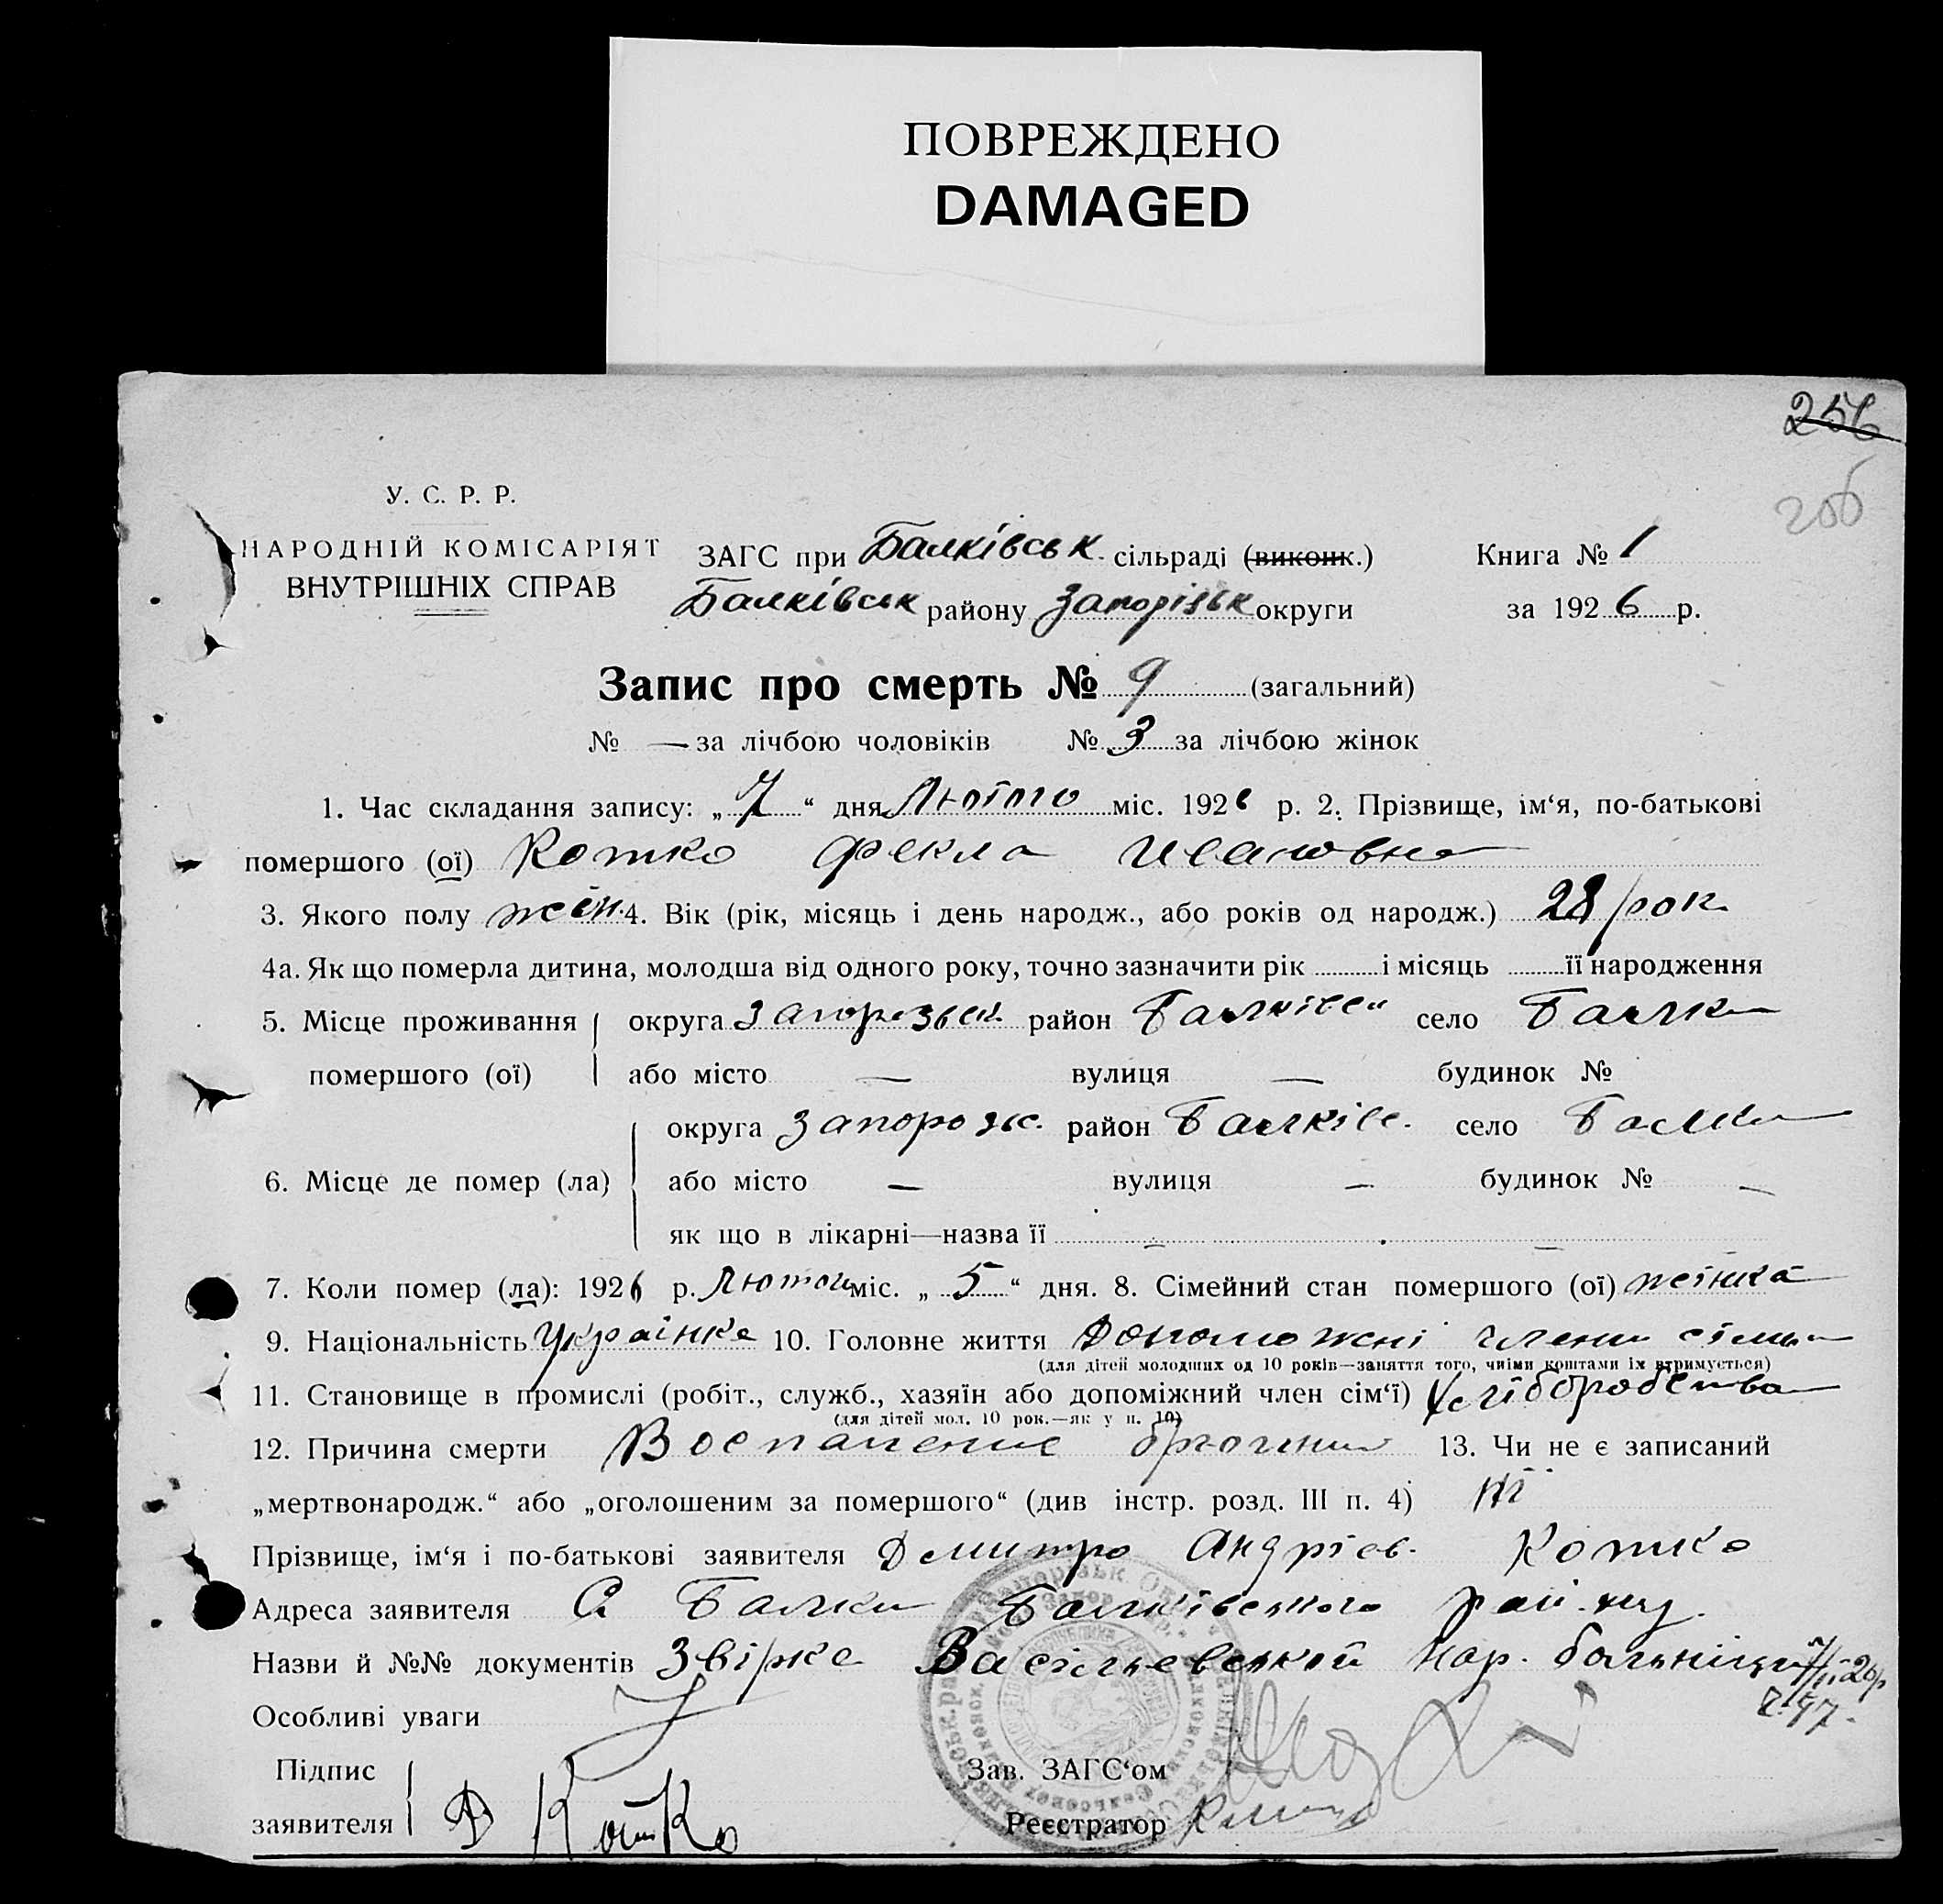 ПОВРЕЖДЕНО
DAMAGED
256
206
У. С. Р. Р.
НАРОДНІЙ КОМІСАРІЯТ
ВНУТРІШНІХ СПРАВ
ЗАГС при Балківськ. сільраді (виконк.) Книга № 1
Балківськ району Запорізьк округи за 1926 р.
Запис про смерть № 9 (загальний)
№ — за лічбою чоловіків № 3 за лічбою жінок
1. Час складання запису: „7“ дня Лютого міс. 1926 р. 2. Прізвище, ім‘я, по-батькові
помершого (ої) Котко Фекла Ивановна
3. Якого полу жін. 4. Вік (рік, місяць і день народж., або років од народж.) 28 рок
4а. Як що померла дитина, молодша від одного року, точно зазначити рік і місяць її народження
5. Місце проживання округа район село Балки
помершого (ої) або місто — вулиця — будинок №
округа Запорож. район Балківс. село Балки
6. Місце де помер (ла) або місто — вулиця — будинок № —
як що в лікарні—назва її — —
7. Коли помер (ла): 1926 р. міс. „5“ дня. 8. Сімейний стан помершого (ої) жінка
9. Національність Українка 10. Головне життя члени
(для дітей молодших од 10 років—заняття того, чиїми коштами їх втримується)
11. Становище в промислі (робіт., служб., хазяїн або допоміжний член сім‘ї) Хліборобства
(для дітей мол. 10 рок.—як у п. 10)
12. Причина смерти Воспаление 13. Чи не є записаний
„мертвонародж.“ або „оголошеним за помершого“ (див інстр. розд. III п. 4) Ні
Прізвище, ім‘я і по-батькові заявителя Дмитро Андріев. Котко
Адреса заявителя С. Балки Балківського рай.
Назви й №№ документів Звірка Васільевській нар. больниці
Особливі уваги
Підпис
заявителя Д Котко
Зав. ЗАГС‘ом
Реєстратор